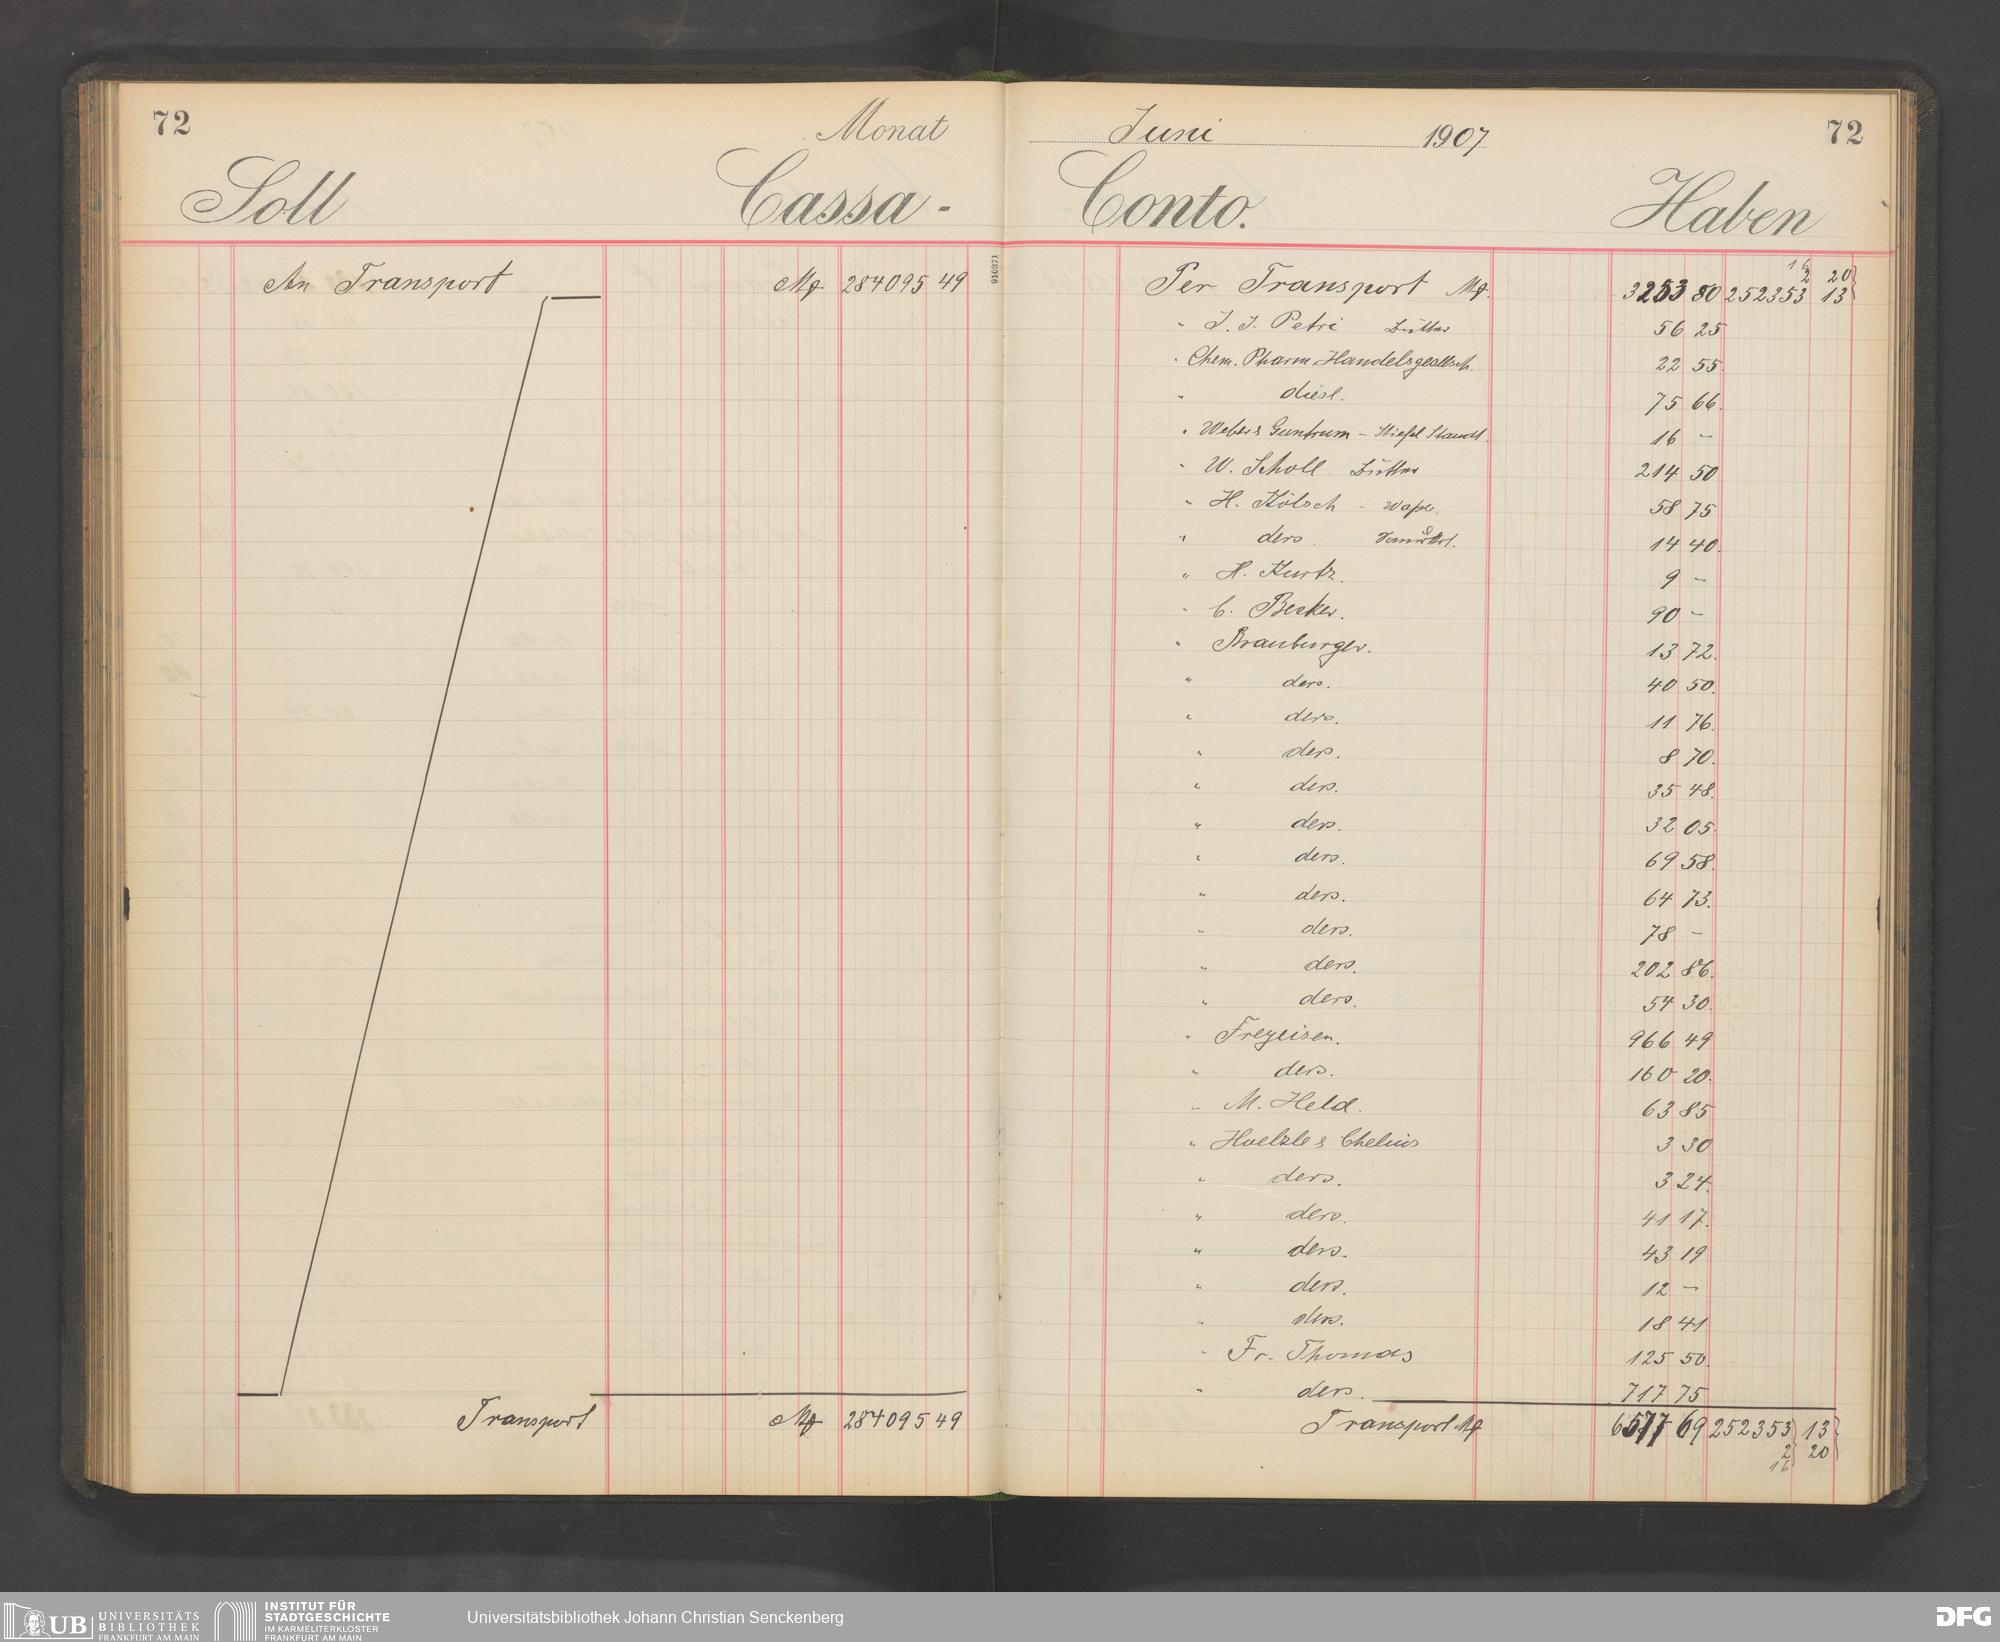 72
Monat
Soll Cassa-
An Transport Mk 284095 49
Transport Mk 284095 49
Juni 1907 72
Conto. Haben
910371
16
2 20
Per Transport Mk. 3253 80 252353 13
" J. J. Petri Butter 56 25
" Chem. Pharm. Handelsgesellsch. 22 55
" diesl. 75 66.
" Weber & Guntrum - 16 –
" W. Scholl Butter 214 50
" H. Kölsch - 58 75
" ders. 14 40.
" H. Kurtz. 9 –
" C. Becker. 90 –
" Brauburger. 13 72.
" ders. 40 50.
" ders. 11 76.
" ders. 8 70.
" ders. 35 48.
" ders. 32 05
" ders. 69 58.
" ders. 64 73.
" ders. 78 –
" ders. 202 86.
" ders. 54 30.
" Freyeisen. 966 49
" ders. 160 20.
" M. Held. 63 85
" Hoelzle & Chelius 3 30
" ders. 3 24.
" ders. 41 17.
" ders. 43 19
" ders. 12 –
" ders. 18 41
" Fr. Thomas 125 50.
" ders. 717 75
Transport Mk 6577 69 252353 13
2 20
16
UB UNIVERSITÄTS
BIBLIOTHEK
FRANKFURT AM MAIN
INSTITUT FÜR
STADTGESCHICHTE
IM KARMELITERKLOSTER
FRANKFURT AM MAIN
Universitätsbibliothek Johann Christian Senckenberg
DFG